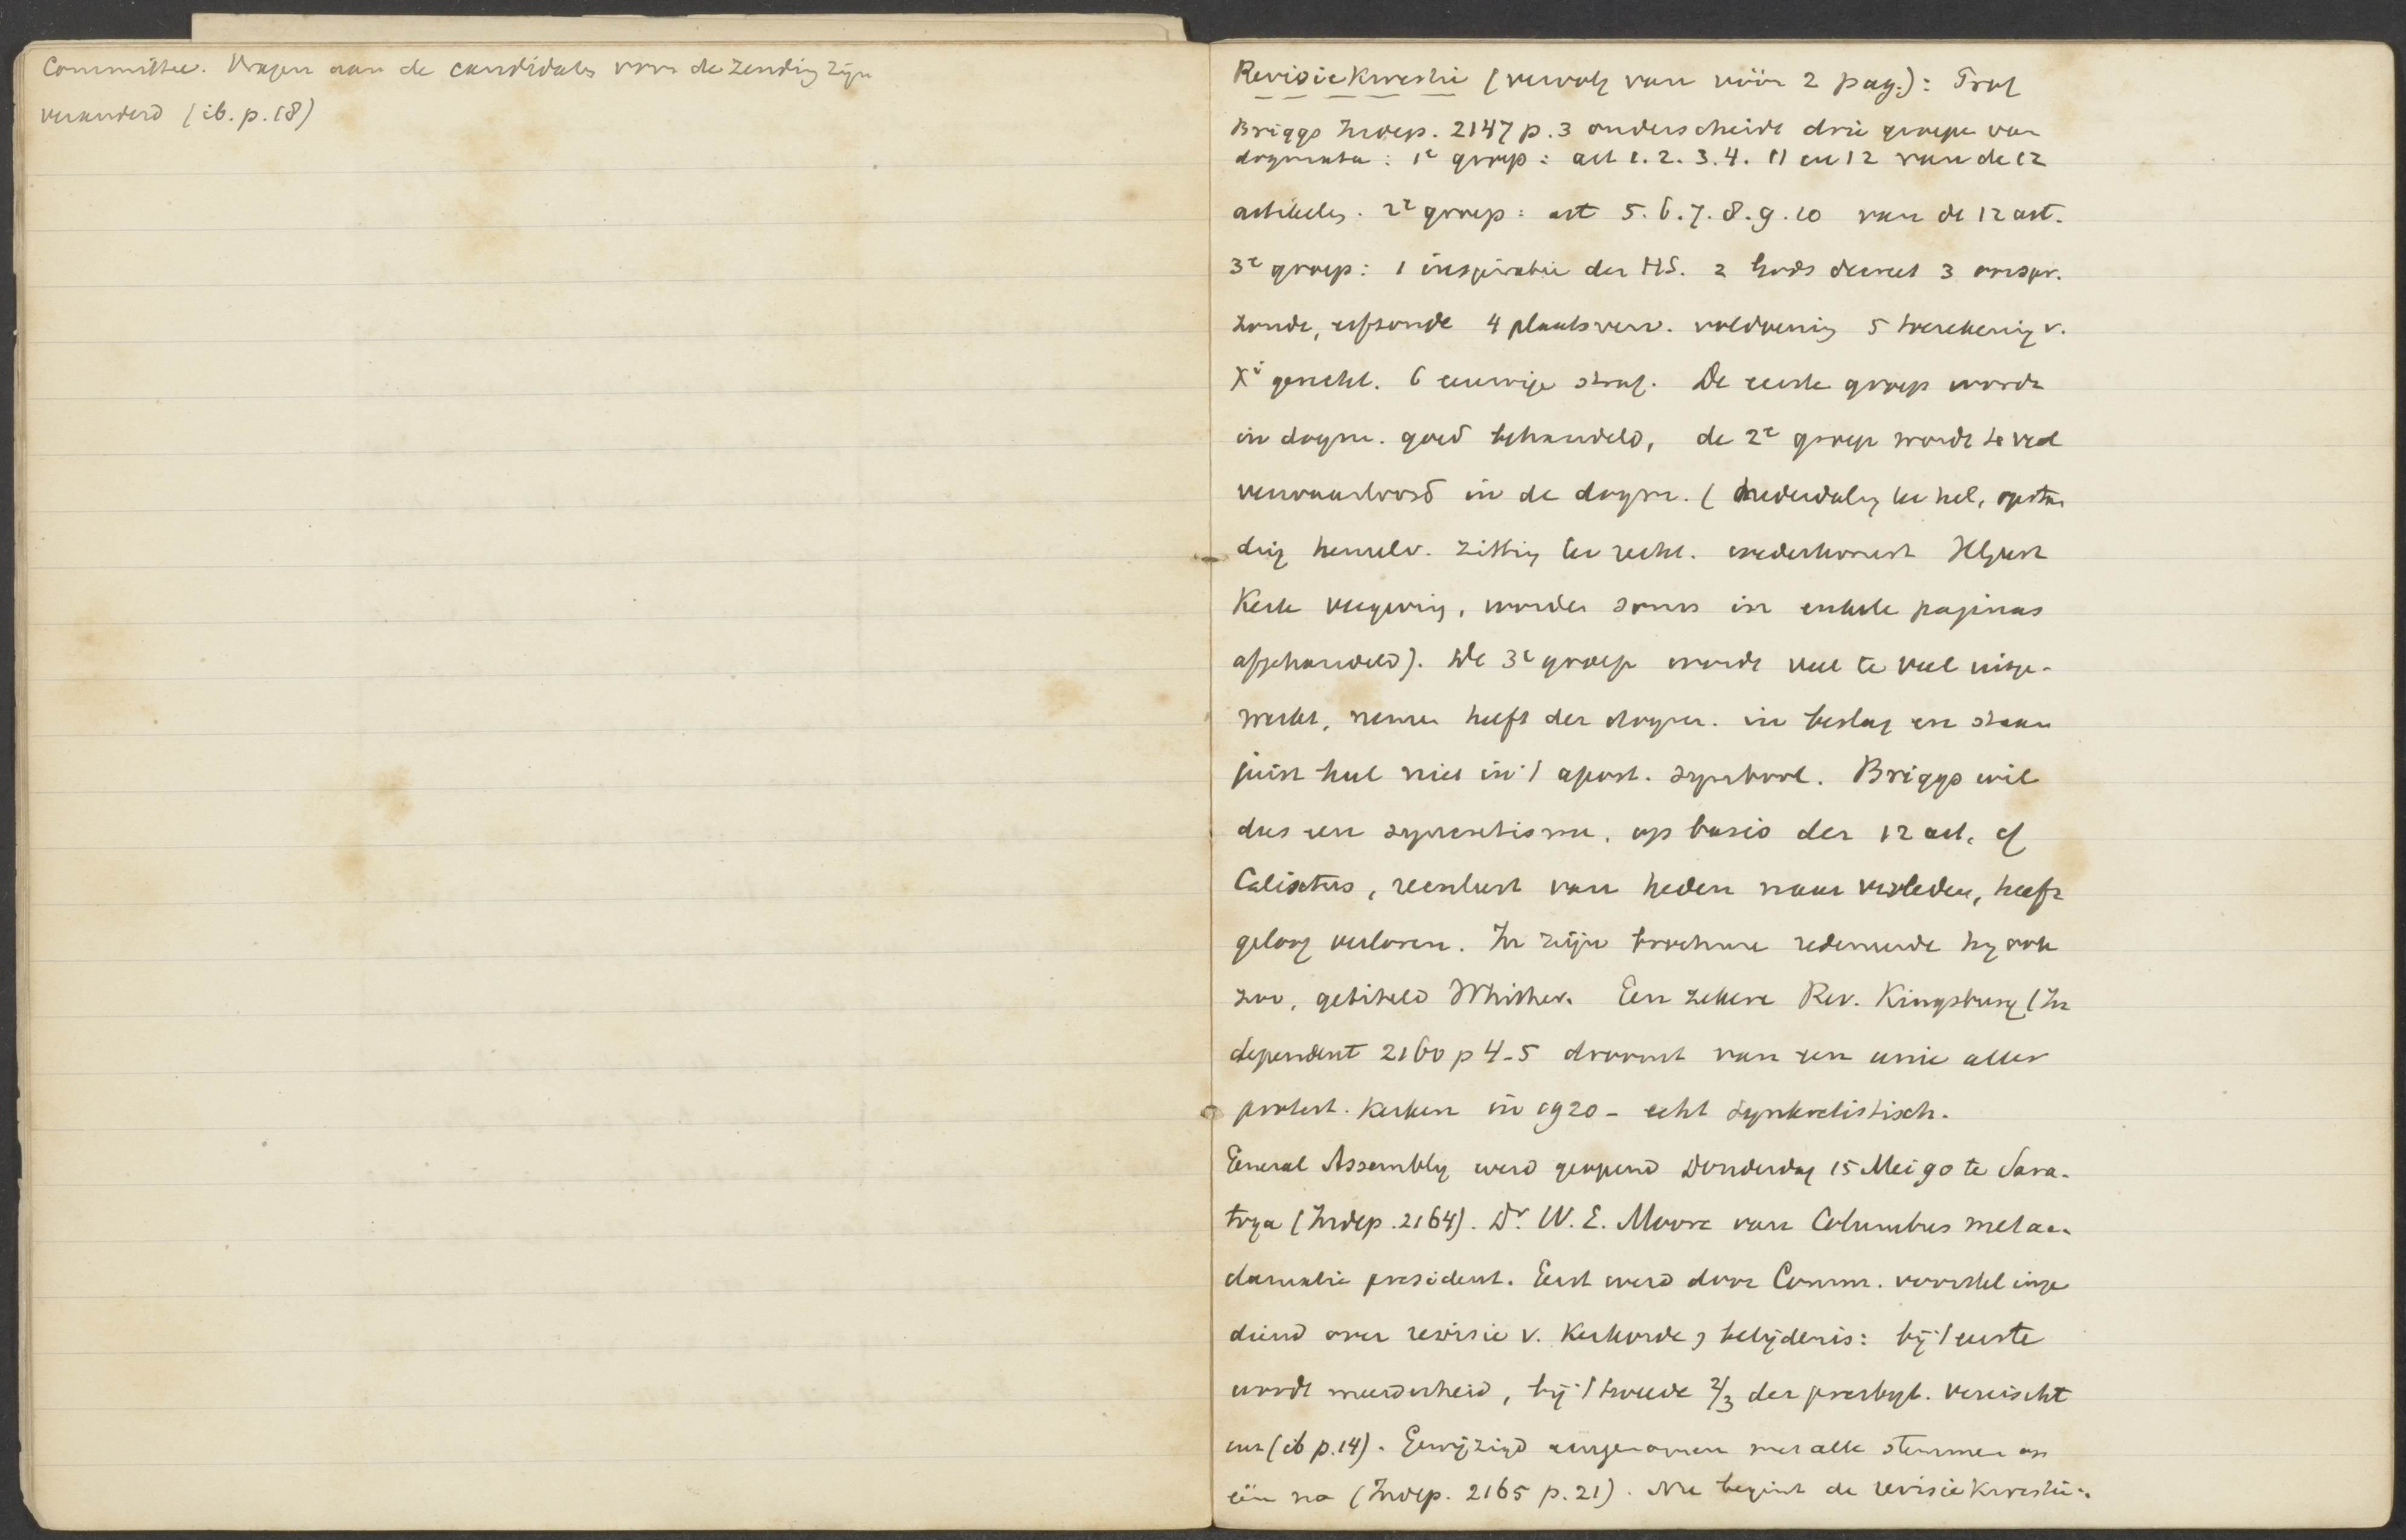 Committee. Vragen aan de candidates voor de zending zijn
veranderd (ib. p. 18)
Revisiekwestie (vervolg van vóór 2 pag.): Prof
Briggs Indep. 2147 p. 3 onderscheidt drie groepen van
dogmata: 1e groep: art 1. 2. 3. 4. 11 en 12 van de 12
artikelen. 2e groep: art 5. 6. 7. 8. 9. 10 van de 12 art.
3e groep: 1 inspiratie der HS. 2 Gods decreet 3 oorspr.
zonde, erfzonde 4 plaatsverv. voldoening 5 toerekening v.
Xi gerecht. 6 eeuwige straf. De eerste groep wordt
in dogm. goed behandeld, de 2e groep wordt te veel
verwaarloosd in de dogm. (nederdaling ter hel, opstan
ding hemelv. zitting ter recht. wederkomst HGeest
Kerk vergeving, worden soms in enkele paginas
afgehandeld). De 3e groep wordt veel te veel uitge-
werkt, neemt heel der dogm. in beslag en staan
juist heel niet in 't apost. symbool. Briggs wil
dus een syncretisme, op basis der 12 art. cf
Calixtus, reenlust van heden naar verleden, heeft
geloof verloren. In zijn brochure redeneerde hij ook
zoo, getiteld Whither. Een zekere Rev. Kingsbury (In
dependent 2160 p 4-5 droomt van een unie aller
protest. Kerken in 1920 - echt synkretistisch.
General Assembly werd geopend Donderdag 15 Mei 90 te Sara-
toga (Indep. 2164). Dr. W. E. Moore van Columbus met acc-
clamatie president. Eerst werd door Comm. voorstel inge
diend over revisie v. Kerkorde & belijdenis: bij 't eerste
wordt meerderheid, bij 't tweede 2/3 der presbyt. vereischt
enz (ib p. 14). Gewijzigd aangenomen met alle stemmen op
één na (Indep. 2165 p. 21). Nu begint de revisiekwestie: